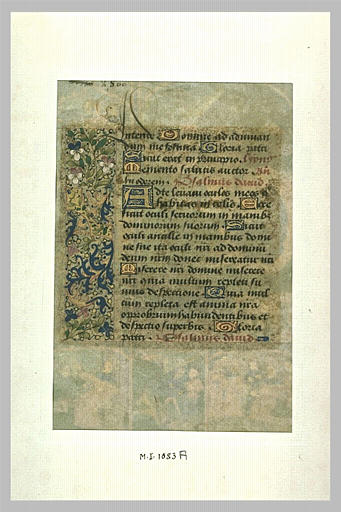 intende Domine ad adiuvan
dum me festina Gloria patri
Sicut erat in principio
Memento salutis auctor
psalmus david
Ad te levavi oculos meos
habitas in celis Ecce
sicut oculi servorum in manibus
dominorum suorum Sicut
oculi ancille in manibus domi
ne sue ita oculi nri ad dominum
deum nrm donec misereatur nri
Miserere nri domine miserere
nri quia multum repleti su
mus despectione Quia mul
tum repleta est anima nra
opprobrium habundantibus et
despectio superbis Gloria
patri psalmus david
M.I. 1093 A